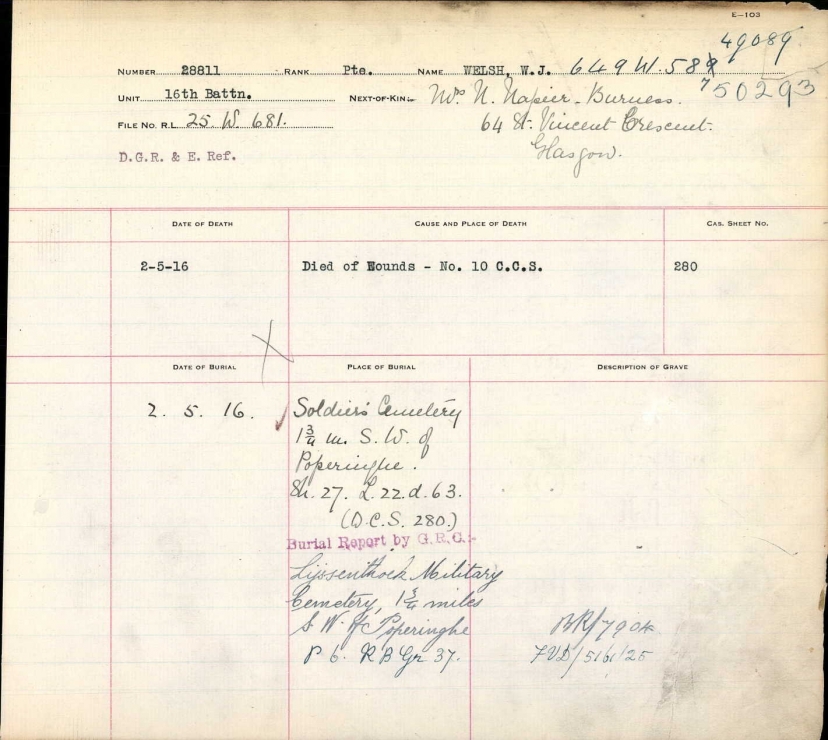 E—103
49089
NUMBER 28811 RANK Pte. NAME WELSH, W.J. 649 W. 589
7 50293
UNIT 16th Battn. NEXT-OF-KIN:- Mrs N. Napier-Burness.
FILE NO. R.L. 25. W. 681. 64 St. Vincent Crescent.
Glasgow.
D.G.R. & E. Ref.
DATE OF DEATH CAUSE AND PLACE OF DEATH CAS. SHEET NO.
2-5-16 Died of Wounds - No. 10 C.C.S. 280
DATE OF BURIAL PLACE OF BURIAL DESCRIPTION OF GRAVE
2. 5. 16. Soldiers Cemetery
1 3/4 m. S. W. of
Poperinghe.
Sh. 27. L. 22. d. 63.
(D.C.S. 280.)
Burial Report by G.R.C:-
Lijssenthoek Military
Cemetery, 1 3/4 miles
S W of Poperinghe BR/7904
P 6. R B Gr 37. FVD/5161/25